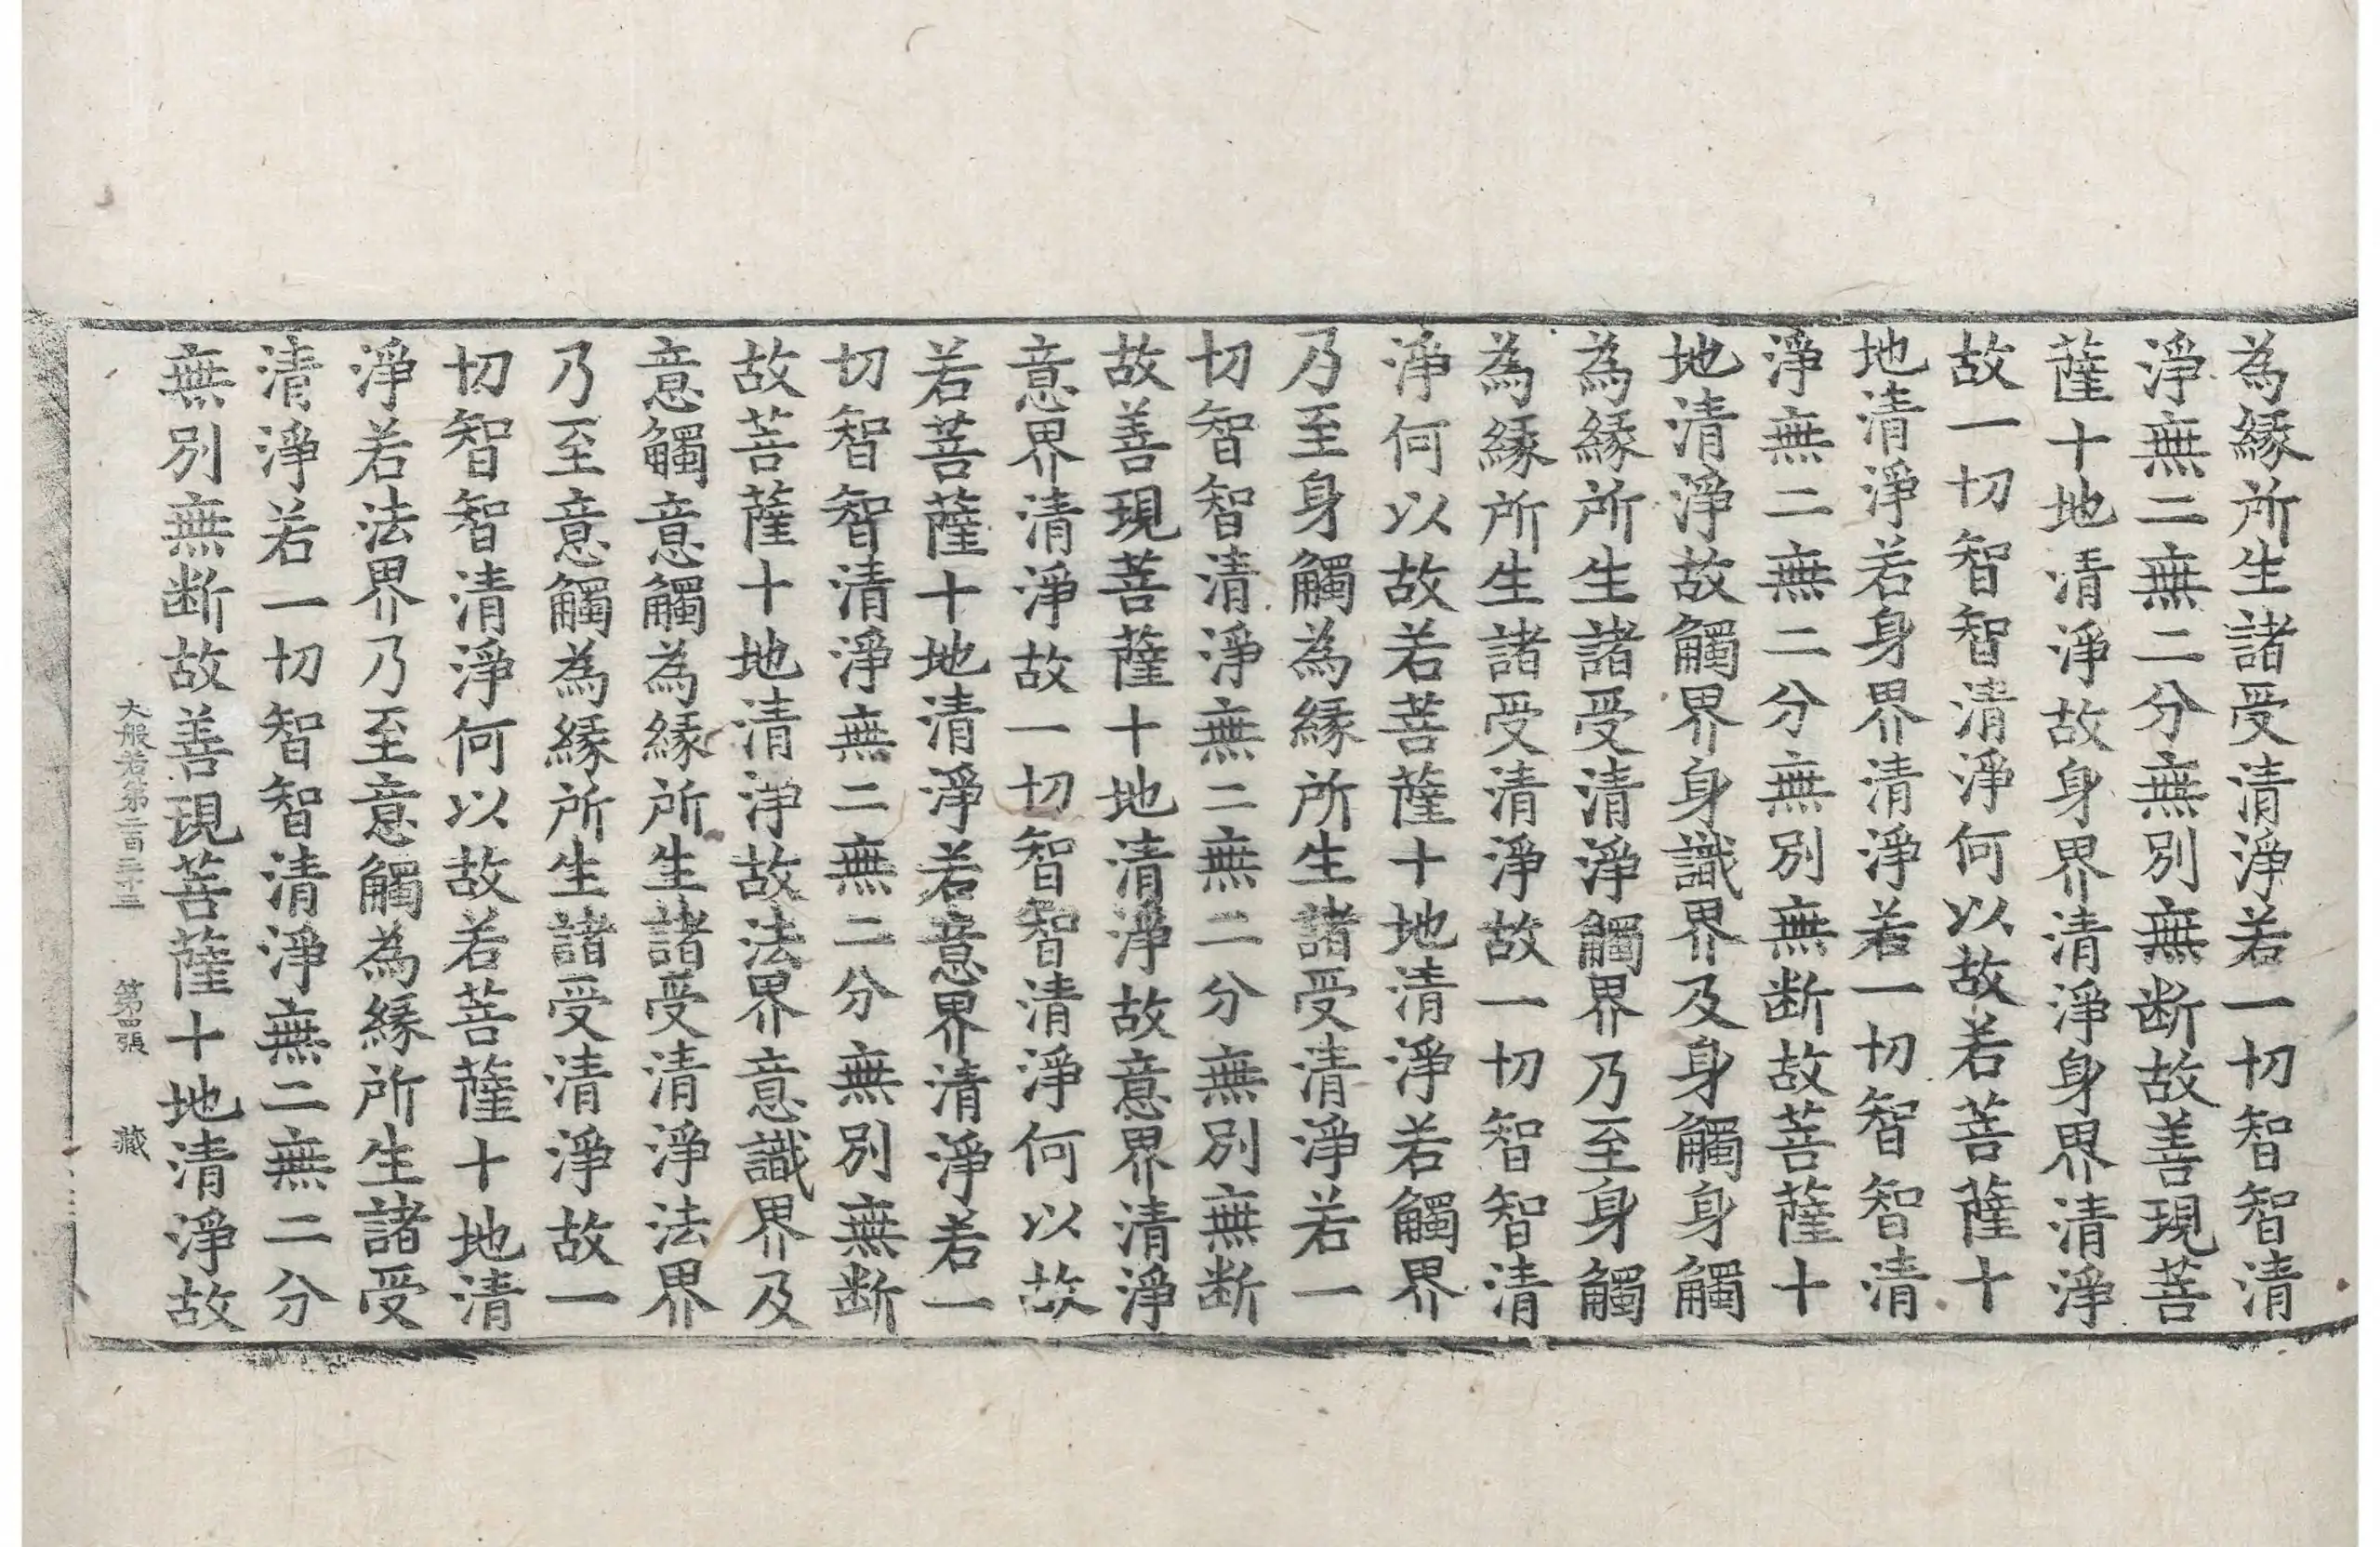 為縁所生諸受清淨若一切智智清
淨無二無二分無別無断故善現菩
薩十地清淨故身界清淨身界清淨
故一切智智清淨何以故若菩薩十
地清淨若身界清淨若一切智智清
淨無二無二分無別無断故菩薩十
地清淨故觸界身識界及身觸身觸
為縁所生諸受清淨觸界乃至身觸
為縁所生諸受清淨故一切智智清
淨何以故若菩薩十地清淨若觸界
乃至身觸為縁所生諸受清淨若一
切智智清淨無二無二分無別無断
故善現菩薩十地清淨故意界清淨
意界清淨故一切智智清淨何以故
若菩薩十地清淨若意界清淨若一
切智智清淨無二無二分無別無断
故菩薩十地清淨故法界意識界及
意觸意觸為縁所生諸受清淨法界
乃至意觸為縁所生諸受清淨故一
切智智清淨何以故若菩薩十地清
淨若法界乃至意觸為縁所生諸受
清淨若一切智智清淨無二無二分
無別無断故善現菩薩十地清淨故
大般若第二百三十三 第四張 藏